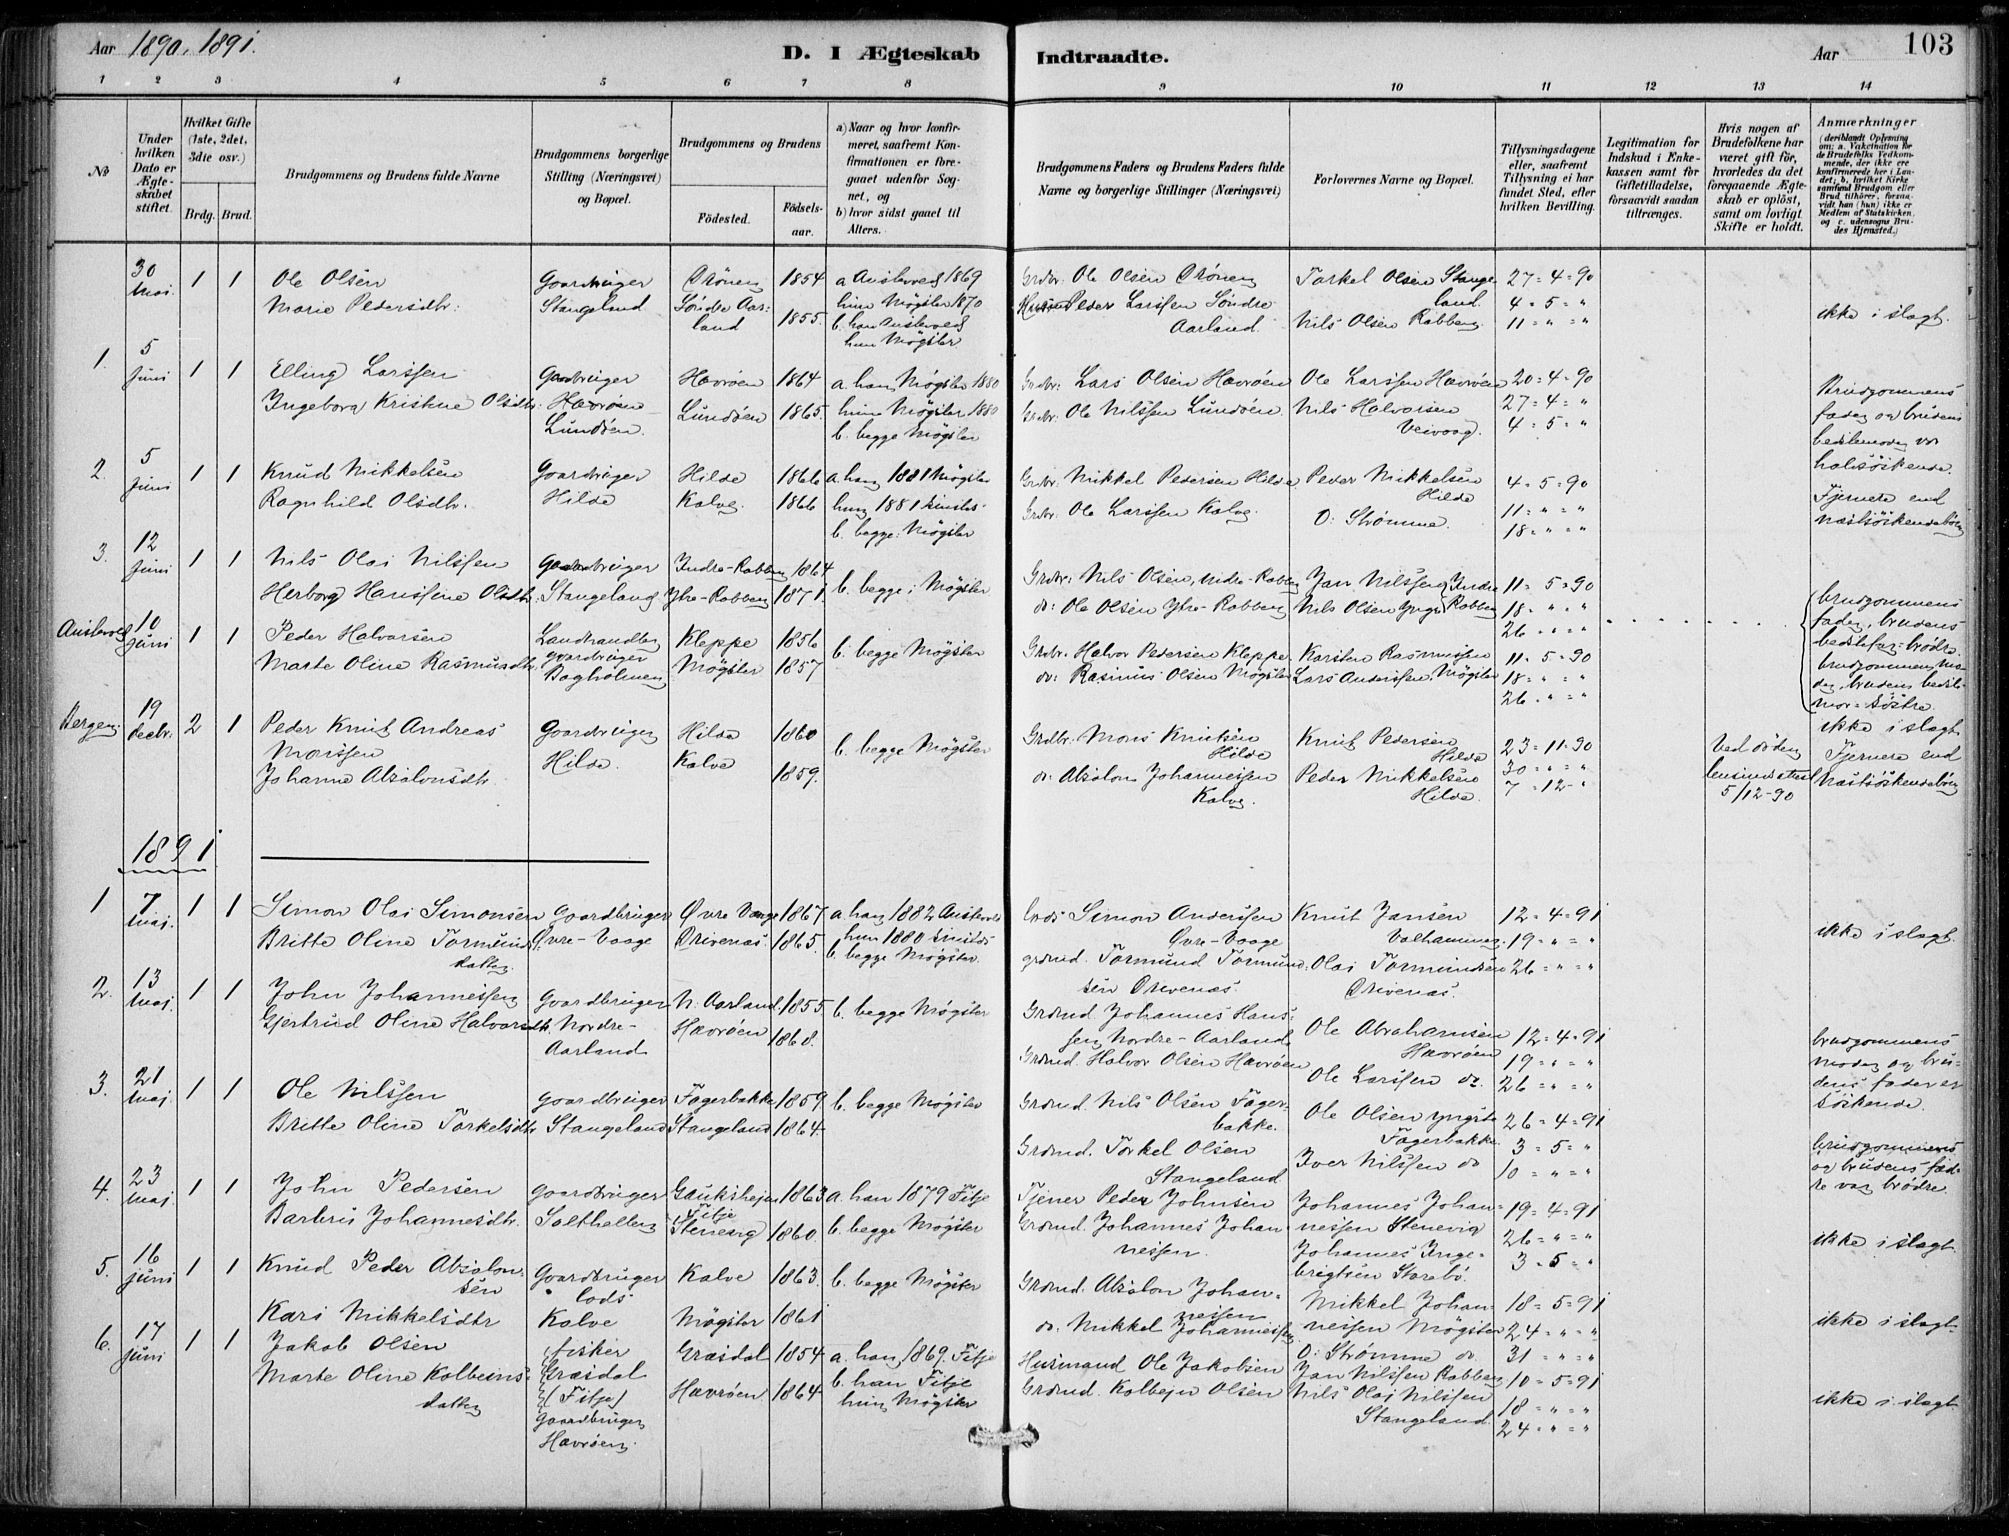 Aar 1890. 1891.
D. I Ægteskab Indtraadte.
Aar
103
1 2 3 4 5 6 7 8 9 10 11 12 13 14
No
Under hvilken Dato er Ægteskabet stiftet.
Hvilket Gifte (1ste, 2det, 3die osv.)
Brdg. Brud.
Brudgommens og Brudens fulde Navne
Brudgommens borgerlige Stilling (Næringsvei) og Bopæl.
Brudgommens og Brudens
Födested. Födselsaar.
a) Naar og hvor konfirmeret, saafremt Konfirmationen er foregaaet udenfor Sognet, og
b) hvor sidst gaaet til Alters.
Brudgommens Faders og Brudens Faders fulde Navne og borgerlige Stillinger (Næringsvei)
Forlovernes Navne og Bopæl.
Tillysningsdagene eller, saafremt Tillysning ei har fundet Sted, efter hvilken Bevilling.
Legitimation for Indskud i Enkekassen samt for Giftetilladelse, forsaavidt saadan tiltrænges.
Hvis nogen af Brudefolkene har været gift för, hvorledes da det foregaaende Ægteskab er oplöst, samt om lovligt Skifte er holdt.
Anmærkninger
(deriblandt Oplysning om: a. Vakcination for de Brudefolks Vedkommende, der ikke ere konfirmerede her i Landet; b. hvilket Kirkesamfund Brudgom eller Brud tilhörer, forsaavidt han (hun) ikke er Medlem af Statskirken, og c. udensogns Brudes Hjemsted.)
30 Mai. 1 1
Ole Olsen
Marie Pedersdtr.
Gaardbruger
Stangeland
Drönen 1854
Söndre Aarland 1855.
a Austevold 1869
hun Møgster 1870
b. han Austevold
hun Møgster
Grdbr. Ole Olsen Drönen
Husmd Peder Larssen Söndre Aarland
Torkel Olsen Stangeland.
Nils Olsen Rabben.
27=4=90
4=5="
11="="
ikke i slægt.
1. 5 Juni 1 1
Elling Larssen
Ingeborg Kristine Olsdtr.
Gaardbruger
Havröen
Lundöen.
Havröen 1864
Lundöen 1865.
a. han Møgster 1880
hun Møgster 1880
b. begge Møgster
Grdbr: Lars Olsen Havröen
Grdbr. Ole Nilssen Lundöen
Ole Larssen Havröen
Nils Halvorsen Veivaag.
20=4=90
27=4="
4=5="
Brudgommens
fader og brudens
bedstemoder var
halvsöskende.
2. 5 Juni 1 1
Knud Mikkelsen
Ragnhild Olsdtr.
Gaardbruger
Hilde
Hilde 1866
Kalve 1866
a. han 1881 Møgster
hun 1881
b. begge: Møgster
Grdbr. Mikkel Pedersen Hilde
Grdbr. Ole Larssen Kalve.
Peder Mikkelsen Hilde
O: Strømme.
4=5=90
11="="
18="="
Fjernere end
næstsöskendebörn
3. 12 Juni 1 1
Nils Olai Nilssen
Herborg Hansine Olsdtr.
Gaardbruger
Stangeland
Indre-Rabben 1864
Ytre-Rabben 1871.
b. begge: Møgster
Grdbr: Nils Olsen, Indre-Rabben
do: Ole Olsen Ytre-Rabben
Jan Nilssen Indre
Nils Olsen Yngre Rabben
11=5=90
18="="
26="="
brudgommens
fader, brudens
bedstefar=brödre.
brudgommens moder,
brudens bedstemor=söstre.
Austevold 10 Juni 1 1
Peder Halvorsen
Marte Oline Rasmusdtr.
Landhandler
gaardbruger
Bagholmen
Kleppe 1856
Møgster 1857
b. begge Møgster
Grdbr. Halvor Pedersen Kleppe
do: Rasmus Olsen Møgster
Karsten Rasmussen
Lars Anderssen, Møgster
11=5=90
18="="
26="="
ikke i slægt.
Bergen. 19 decbr. 2 1
Peder Knut Andreas
Monssen
Johanne Absalonsdtr.
Gaardbruger
Hilde.
Hilde 1860
Kalve 1859.
b. begge Møgster
Grdbr. Mons Knutsen Hilde
do: Absalon Johannessen Kalve.
Knut Pedersen Hilde
Peder Mikkelsen Hilde.
23=11=90
30="="
7=12="
Ved döden
5/12-90
Fjernere end
næstsöskendebörn
1891
1 7 Maj. 1 1
Simon Olai Simonsen
Britte Oline Tormunds
datter.
Gaardbruger
Øvre-Vaage
Øvre Vaage 1867
Drivenæs. 1865.
a. han 1882 Austevold
hun 1880
b. begge Møgster.
Lods Simon Anderssen
Øvre-Vaage
grdmd. Tormund Tormundsen Drivenæs.
Knut Jansen
Valhammer
Olai Tormundsen
Drivenæs.
12=4=91
19="="
26="="
ikke i slægt.
2. 13 Maj. 1 1
John Johannessen
Gjertrud Oline Halvorsdtr.
Gaardbruger
Nordre-
Aarland
N. Aarland 1855.
Havröen 1868.
b. begge Møgster
Grdmd. Johannes Hanssen Nordre-Aarland
Grdmd. Halvor Olsen Havröen
Ole Abrahamsen
Havröen
Ole Larssen do.
12=4=91
19="="
26="="
brudgommens
moder og brudens
fader er
söskende.
3. 21 Maj. 1 1
Ole Nilssen
Britte Oline Torkelsdtr
Gaardbruger
Stangeland
Fagerbakke 1859
Stangeland 1864
b. begge Møgster
Grdmd. Nils Olsen Fagerbakke.
Grdmd. Torkel Olsen
Stangeland
Ole Olsen yngste
Fagerbakke
Iver Nilssen do
26=4=91
3=5="
10="="
brudgommens
og brudens fædre
var brödre.
4. 23 Maj. 1 1
John Pedersen
Barbru Johannesdtr.
Gaardbruger
Salthellen
Gauksheja 1863
Fitje
Stenevig 1860
a. han 1879 Fitje
b. begge Møgster
Tjener Peder Johnsen
Grdmd. Johannes Johannessen.
Johannes Johannessen Stenevig
Johannes Ingebrigtsen Storebö.
19=4=91
26="="
3=5="
ikke i slægt.
5. 16 juni 1 1
Knud Peder Absalonsen
Kari Mikkelsdtr
Gaardbruger
Lods
Kalve
Kalve 1863.
Møgster 1861
b. begge Møgster
Grdmd. Absalon Johannessen
do. Mikkel Johannessen
Mikkel Johannessen Møgster
O: Strømme do.
18=5=91
24="="
31="="
ikke i slægt.
6. 17 juni 1 1
Jakob Olsen
Marte Oline Kolbeinsdatter
fisker
Græsdal
(Fitje)
Gaardbruger
Havröen.
Græsdal 1854
Havröen 1864
a. han 1869. Fitje
b. han Fitje
hun Møgster
Husmand Ole Jakobsen
Grdmd. Kolbejn Olsen
Jan Nilssen Rabben
Nils Olaj Nilssen
Stangeland.
10=5=91
18="="
24="="
ikke i slægt